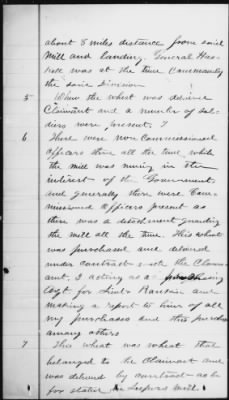 about 8 miles distance from said
Mill and Landing. General Has-
kell was at the time Commanding
the said Division
5 When the wheat was delivered
Claimant and a number of Sol-
diers were present. 7
6 There were non Commissioned
officers there all the time while
the mill was runing in the
interest of the Government,
and generally there were Com-
missioned Officers present as
there was a detachment guarding
the mill all the time. This wheat
was purchased and delivered
under contract with the Claim-
ant, I acting as a purchasing
Agt for Lieut Rankin and
making a report to him of all
my purchases and this purchase
among others
7 This wheat was wheat that
belonged to the Claimant and
was delivered by contract as be-
fore stated in Leepers Mill